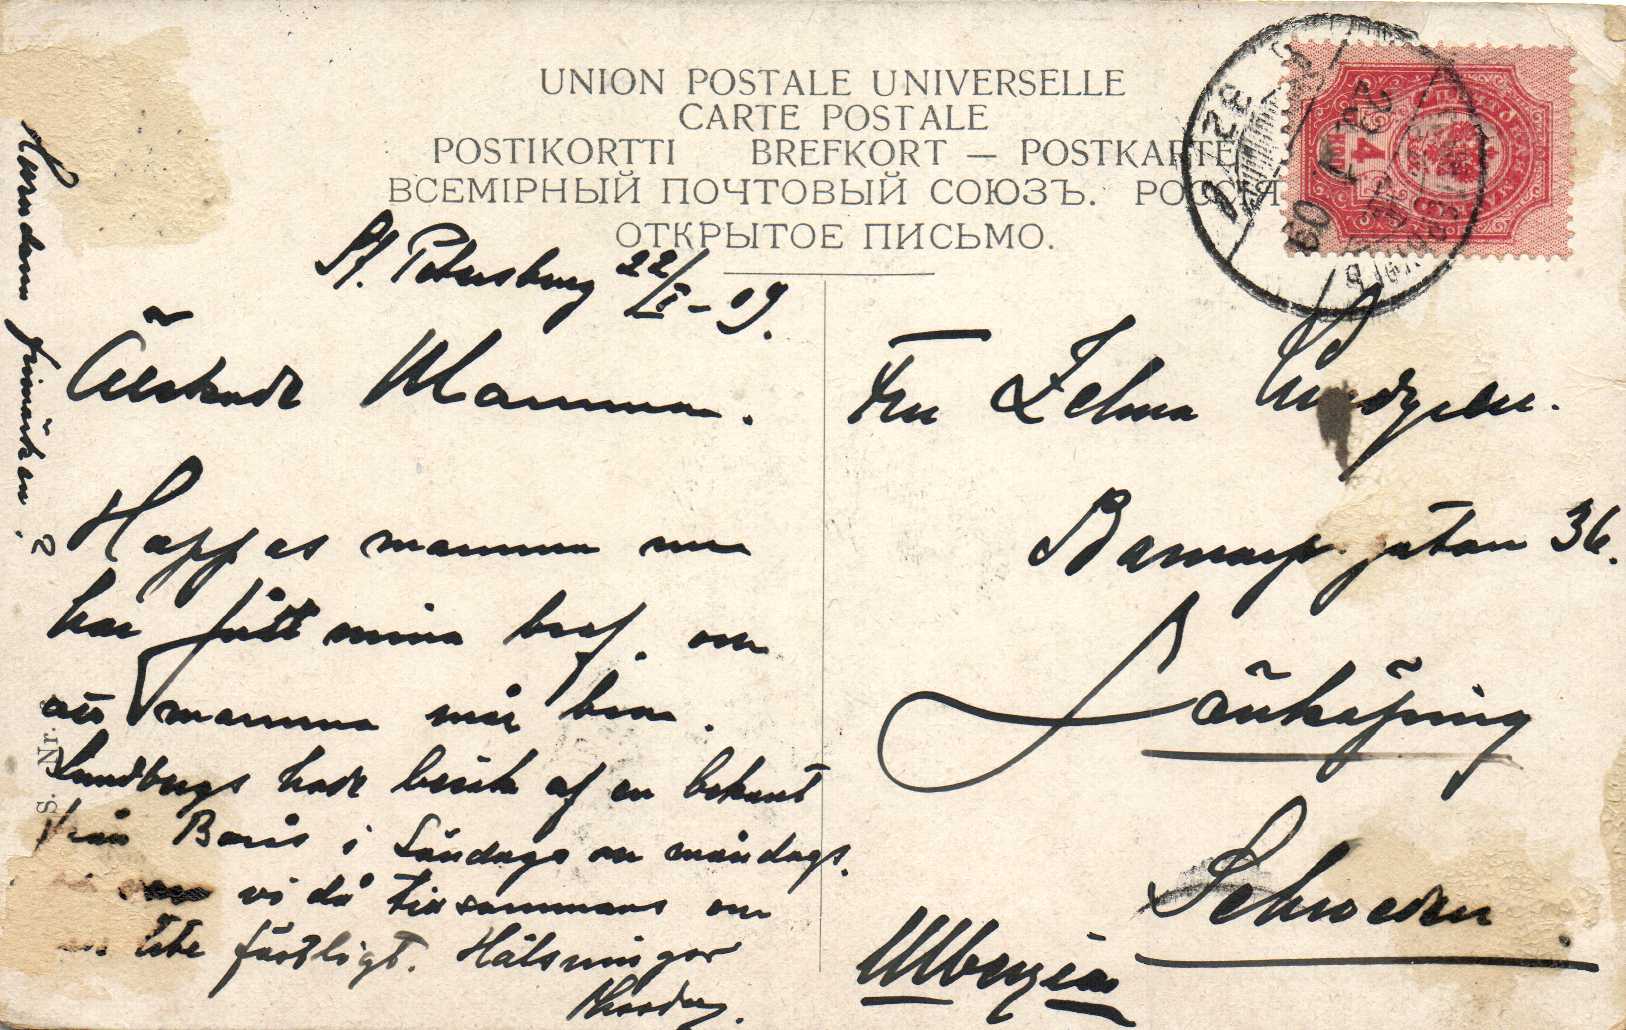 UNION POSTALE UNIVERSELLE
CARTE POSTALE
POSTIKORTTI BREFKORT — POSTKARTE
ВСЕМІРНЫЙ ПОЧТОВЫЙ СОЮЗЪ. РОССІЯ
ОТКРЫТОЕ ПИСЬМО.
St. Petersburg 22/I - 09.
Älskade Mamma.
Hoppas mamma nu
har fått mina bref. om
att mamma mår bra.
Lundbergs hade besök af en bekant
från Borås i Söndags om måndags.
vi då tillsammans om
lite festligt. Hälsningar
Fru Selma
gatan 36.
Jönköping
Schweden
Швеція
frimärken?
S. Nr.
4